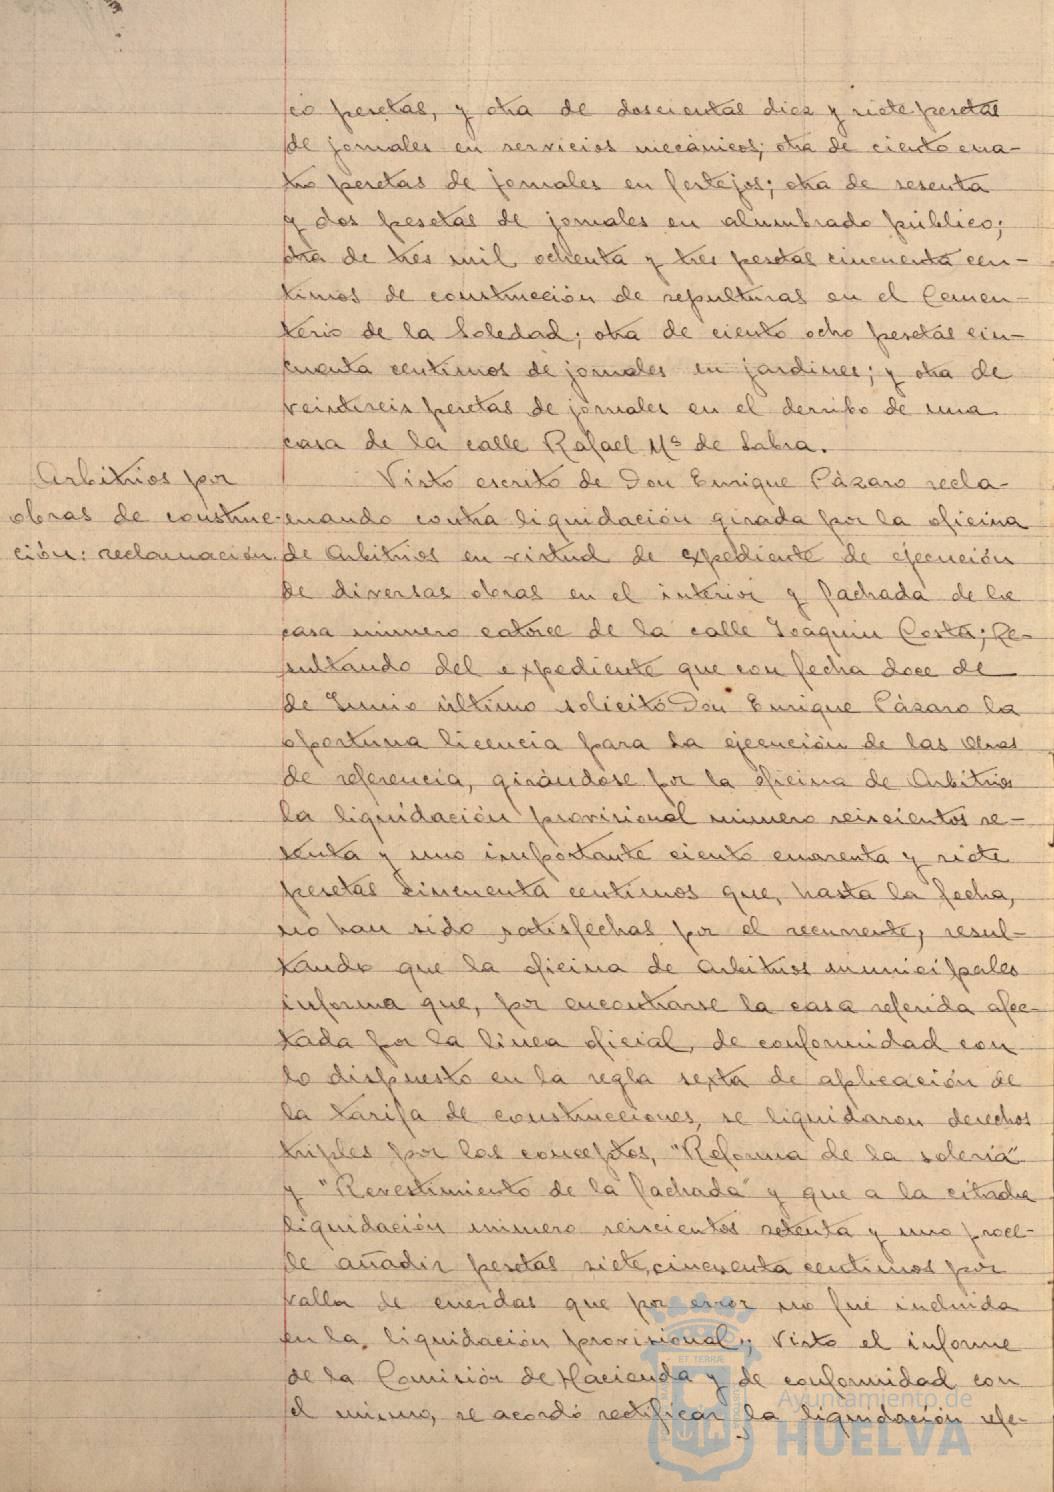 co pesetas, y otra de doscientas diez y siete pesetas
de jornales en servicios mecánicos; otra de ciento cua-
tro pesetas de jornales en festejos; otra de sesenta
y dos pesetas de jornales en alumbrado público;
otra de tres mil ochenta y tres pesetas cincuenta cen-
timos de construcción de sepulturas en el Cemen-
terio de la Soledad; otra de ciento ocho pesetas cin-
cuenta centimos de jornales en jardines; y otra de
veintiseis pesetas de jornales en el derribo de una
casa de la calle Rafael Mª de Labra.
Arbitrios por
obras de construc-
ción: reclamación.
Visto escrito de Don Enrique Lázaro recla-
mando contra liquidación girada por la oficina
de Arbitrios en virtud de expediente de ejecución
de diversas obras en el interior y fachada de la
casa número catorce de la calle Joaquin Costa; Re-
sultando del expediente que con fecha doce de
de Junio último solicitó Don Enrique Lázaro la
oportuna licencia para la ejecución de las obras
de referencia, girándose por la oficina de Arbitrios
la liquidación provisional número seiscientos se-
tenta y uno importante ciento cuarenta y siete
pesetas cincuenta centimos que, hasta la fecha,
no han sido satisfechas por el recurrente; resul-
tando que la oficina de arbitrios municipales
informa que, por encontrarse la casa referida afec-
tada por la linea oficial, de conformidad con
lo dispuesto en la regla sexta de aplicación de
la tarifa de construcciones, se liquidaron derechos
triples por los conceptos, "Reforma de la soleria"
y "Revestimiento de la fachada" y que a la citada
liquidación número seiscientos setenta y uno proce-
de añadir pesetas siete, cincuenta centimos por
valla de cuerdas que por error no fué incluida
en la liquidación provisional; Visto el informe
de la Comisión de Hacienda y de conformidad con
el mismo, se acordó rectificar la liquidación refe-
ET TERRÆ
Ayuntamiento de
HUELVA